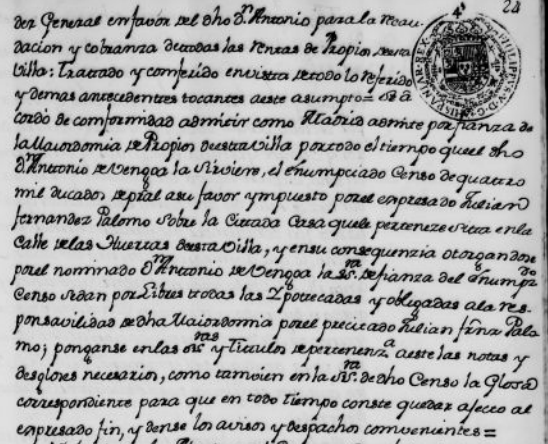 24
der General en favor del dho Dn. Antonio para la recau-
dacion y cobranza de todas las rentas de Propios de esta
Villa: Tratado y conferido en vista de todo lo referido
y demas antecedentes tocantes a este asumpto = se a
cordò de conformidad admitir como Madrid admite por fianza de
la Maiordomia de Propios de esta Villa por todo el tiempo que el dho
Dn. Antonio de Vengoa la sirviere, el enumpciado Censo de quattro
mil ducados de pral a su favor ympuesto por el expresado Iulian
fernandez Palomo sobre la Cittada Casa que le perteneze sitta en la
Calle de las Huertas de esta Villa, y en su consequenzia otorgandose
por el nominado Dn. Antonio de Vengoa la ss.ra de fianza del enumpdo
Censo se dan por Libres todas las Ypotecadas y obligadas a la res-
ponsavilidad de dha Maiordomia por el precitado Iulian frnz Pala
mo; ponganse en las ss.ras y Titulos de pertenenza a este las notas y
desgloses necesarios, como tamvien en la ss.ra de dho Censo la Glosa
correspondiente para que en todo tiempo conste quedar afecto al
expresado fin, y dense los avisos y despachos combenientes =